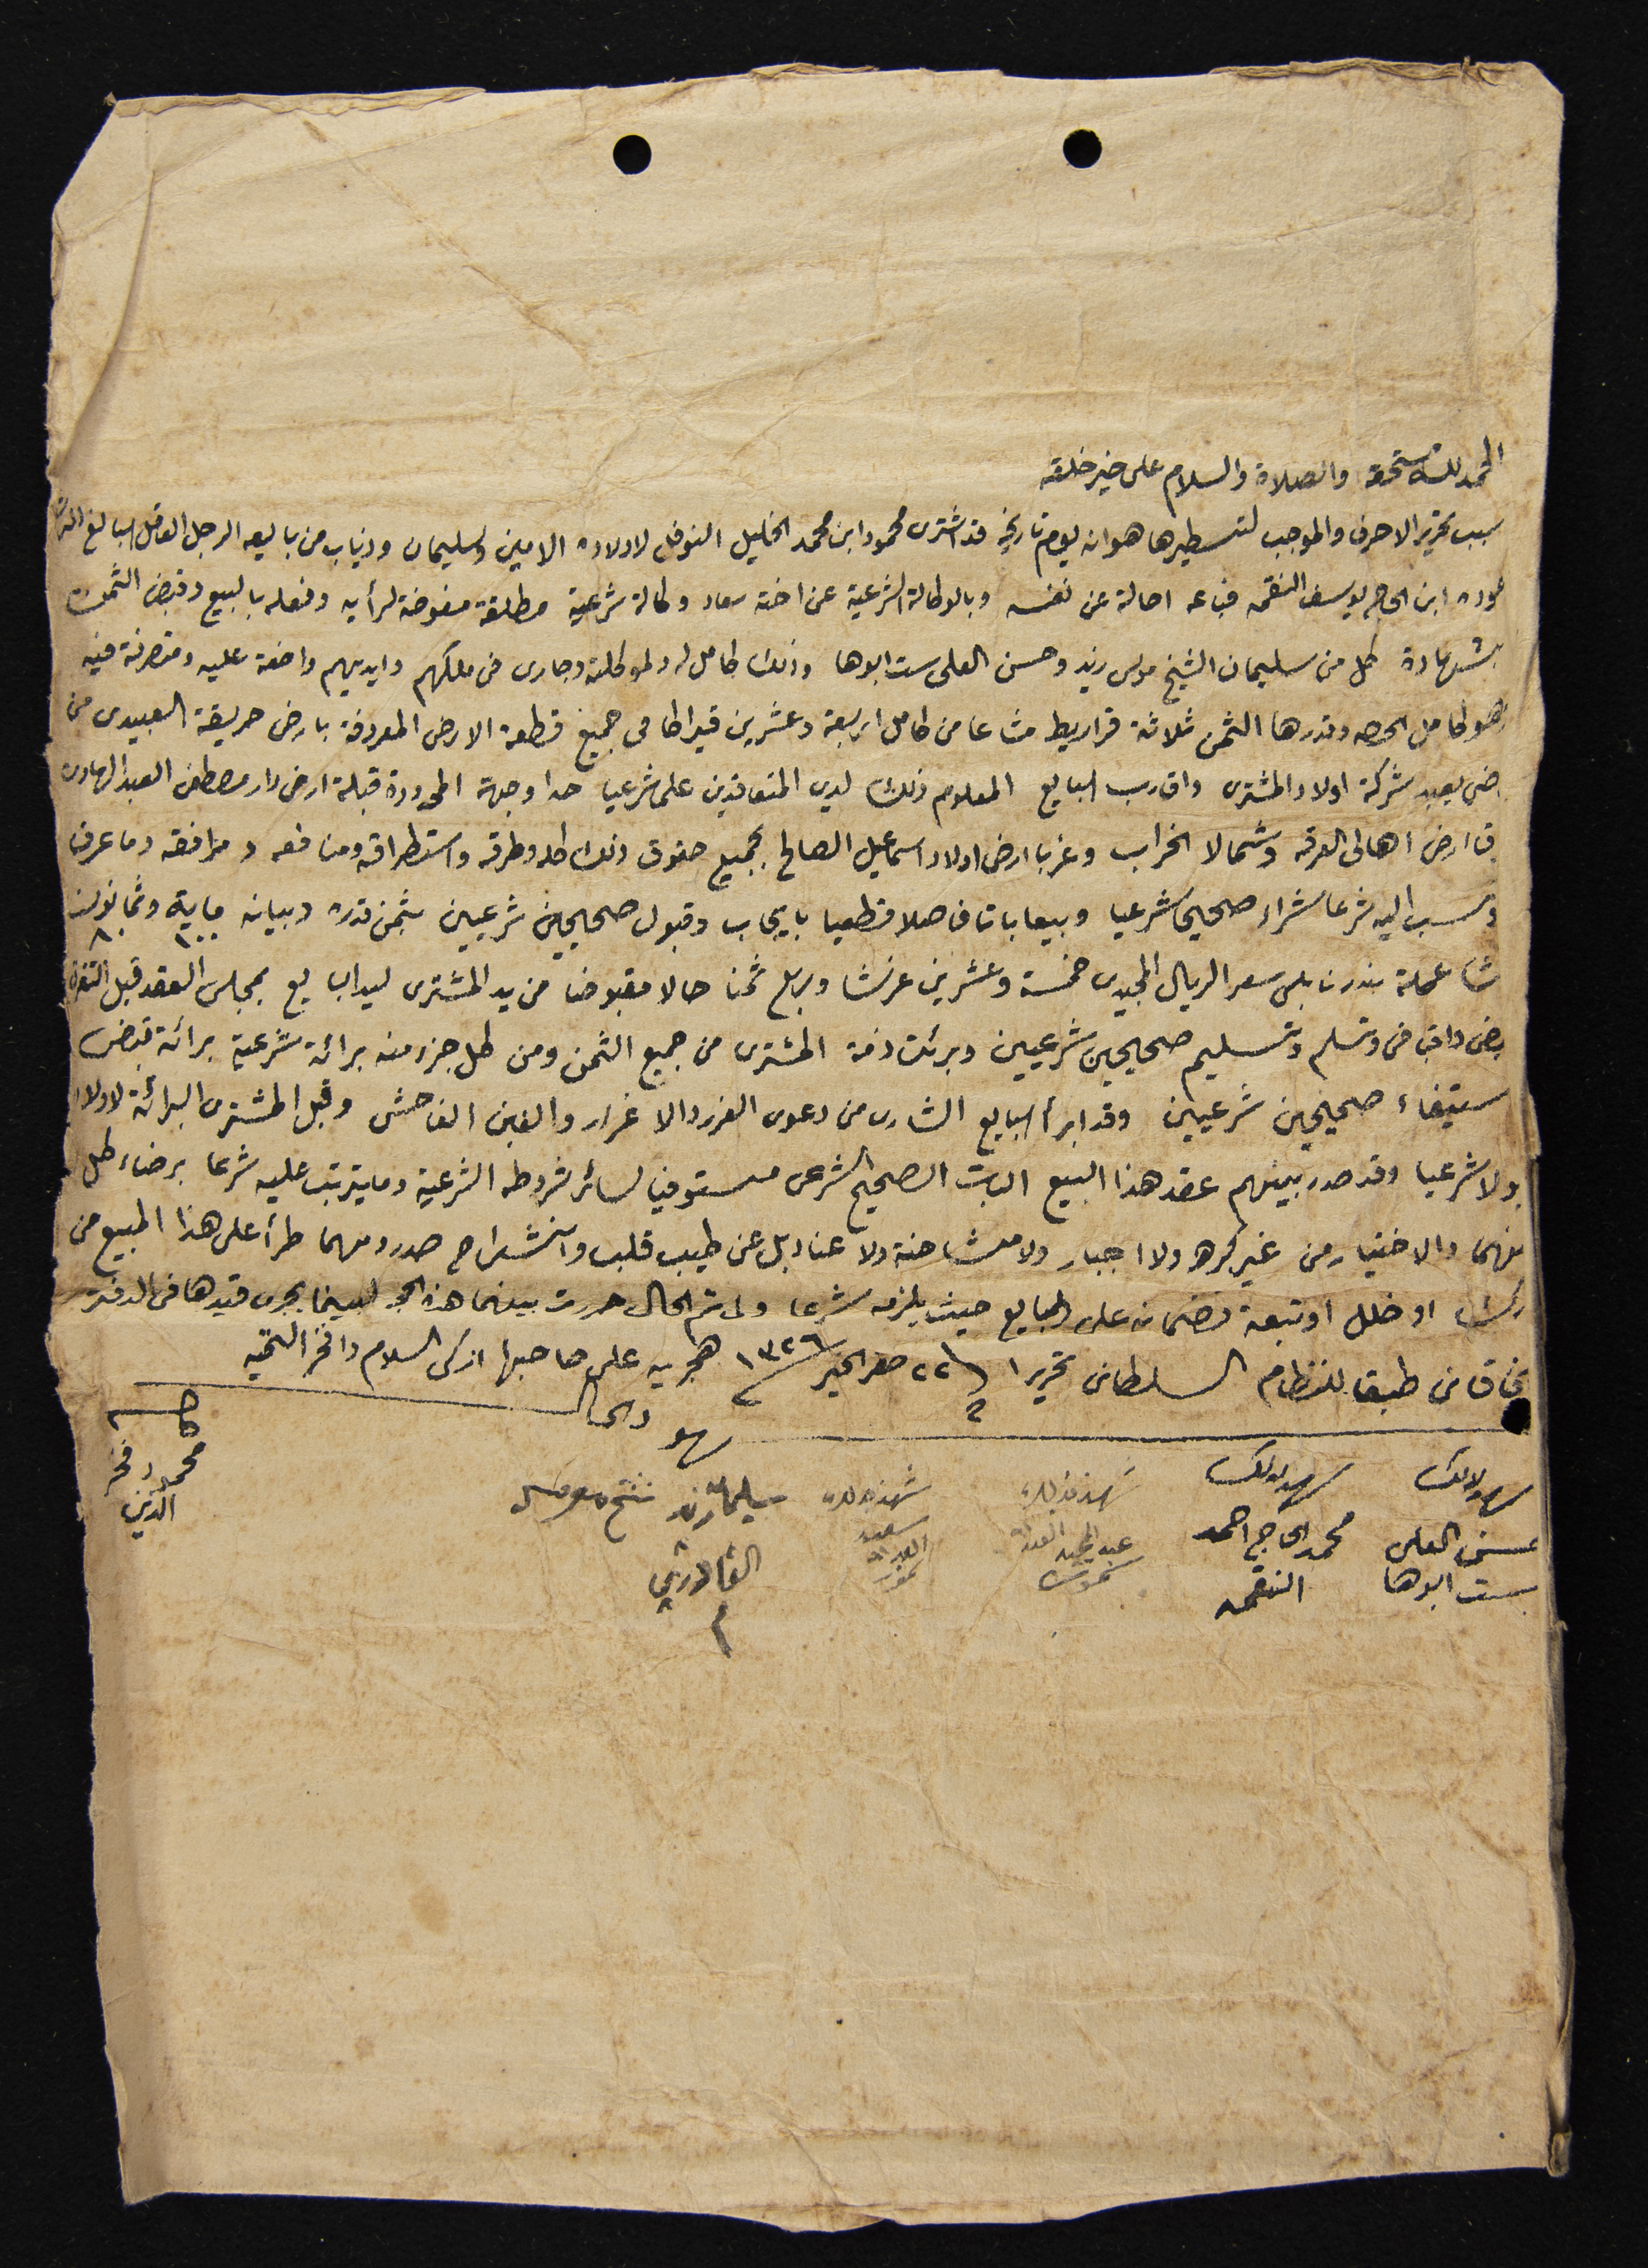 الحمد لله مستحقه والصلاة والسلام على خير خلقه
سبب تحرير الاحرف والموجب لتسطيرها هو انه ليوم تاريخه قد اشترى محمود ابن محمد الخليل النوفل لاولاده الامين وسليمان وذياب من بايعه الرجل العاقل البالغ
ابن الحاج يوسف النقمه فباعه اصالة عن نفسه وبالوكالة الشرعية عن اخته سعاد وكالة شرعية مطلقة مفوضة لرأيه وفعله بالبيع وقبض الثمن
بشهادة كل من سليمان الشيخ موسى زيد وحسن العلي ست ابوها وذلك كامل له ولموكلته وجارى في ملكهم وايديهم واضعة عليه ومتصرفة فيه
وهو كامل الحصه وقدرها الثمن ثلاثة قراريط مشاعا من كامل اربعة وعشرين قيراطا في جميع قطعة الارض المعروفة بارض حريقة العبيدى من
شركة اولاد المشترى واقارب البايع المعلوم ذلك لدى المتعاقدين علما شرعيا حدا وجهة المحدودة قبلة ارض دار مصطفى العبد الهادى
ارض اهالى العرقه وشمالا الخراب وغربا ارض اولاد اسماعيل الصالح بجميع حقوق ذلك كله وطرقه واستطراقه ومنافعه ومرافقه وما عرف
ونسب اليه شرعا شراء صحيحا شرعيا وبيعا باتا فاصلا قطعيا بايجاب وقبول صحيحين شرعيين بثمن قدره وبيانه ماية وثمانون
١٠٠ ٨٠
عملة بندرنابلس سعر الريال المجيدى خمسة وعشرين غرشا وربع ثمنا حالا مقبوضا من يد المشترى ليد البايع بمجلس العقد قبل التفرق
وتسلم وتسليم صحيحين شرعيين وبرئت ذمة المشترى من جميع الثمن ومن كل جزء منه برائة شرعية برائة قبض
ستيفاء صحيحين شرعيين وقد ابرأ البايع الشارى من دعوى الغرر والاغرار والغبن الفاحش وقبل المشترى البرائة لاولاده
قبولا شرعيا وقد صدر بينهم عقد هذا البيع البات الصحيح الشرعى مستوفيا لسائر شروطه الشرعية وما يترتب عليه شرعا برضاء كل
منهما والاختيار من غير كره ولا اجبار ولا مشاحنة ولا عناد بل عن طيب قلب وانشراح صدر ومهما طرأ على هذا المبيع من
درك او خلل او تبعة فضمانه على البايع حيث يلزمه شرعا ولما تم الحال حررت بينهما هذه الحجه لبينما يجرى قيدها في الدفتر
الخاقانى طبقا للنظام السلطانى تحريرا في ٢٢ صفر الخير ١٣٢٦ هجريه على صاحبها ازكى السلام وافخر التحيه
شهود الحال
شهد بذلك
حسن العلى
ست ابوها
شهد بذلك
محمد الحاج احمد
النقمه
شهد بذلك
عبد المجيد
شهد بذلك
سعيد
سليمان زيد شيخ
القادرى
كاتبه
محمود فخر
الدين